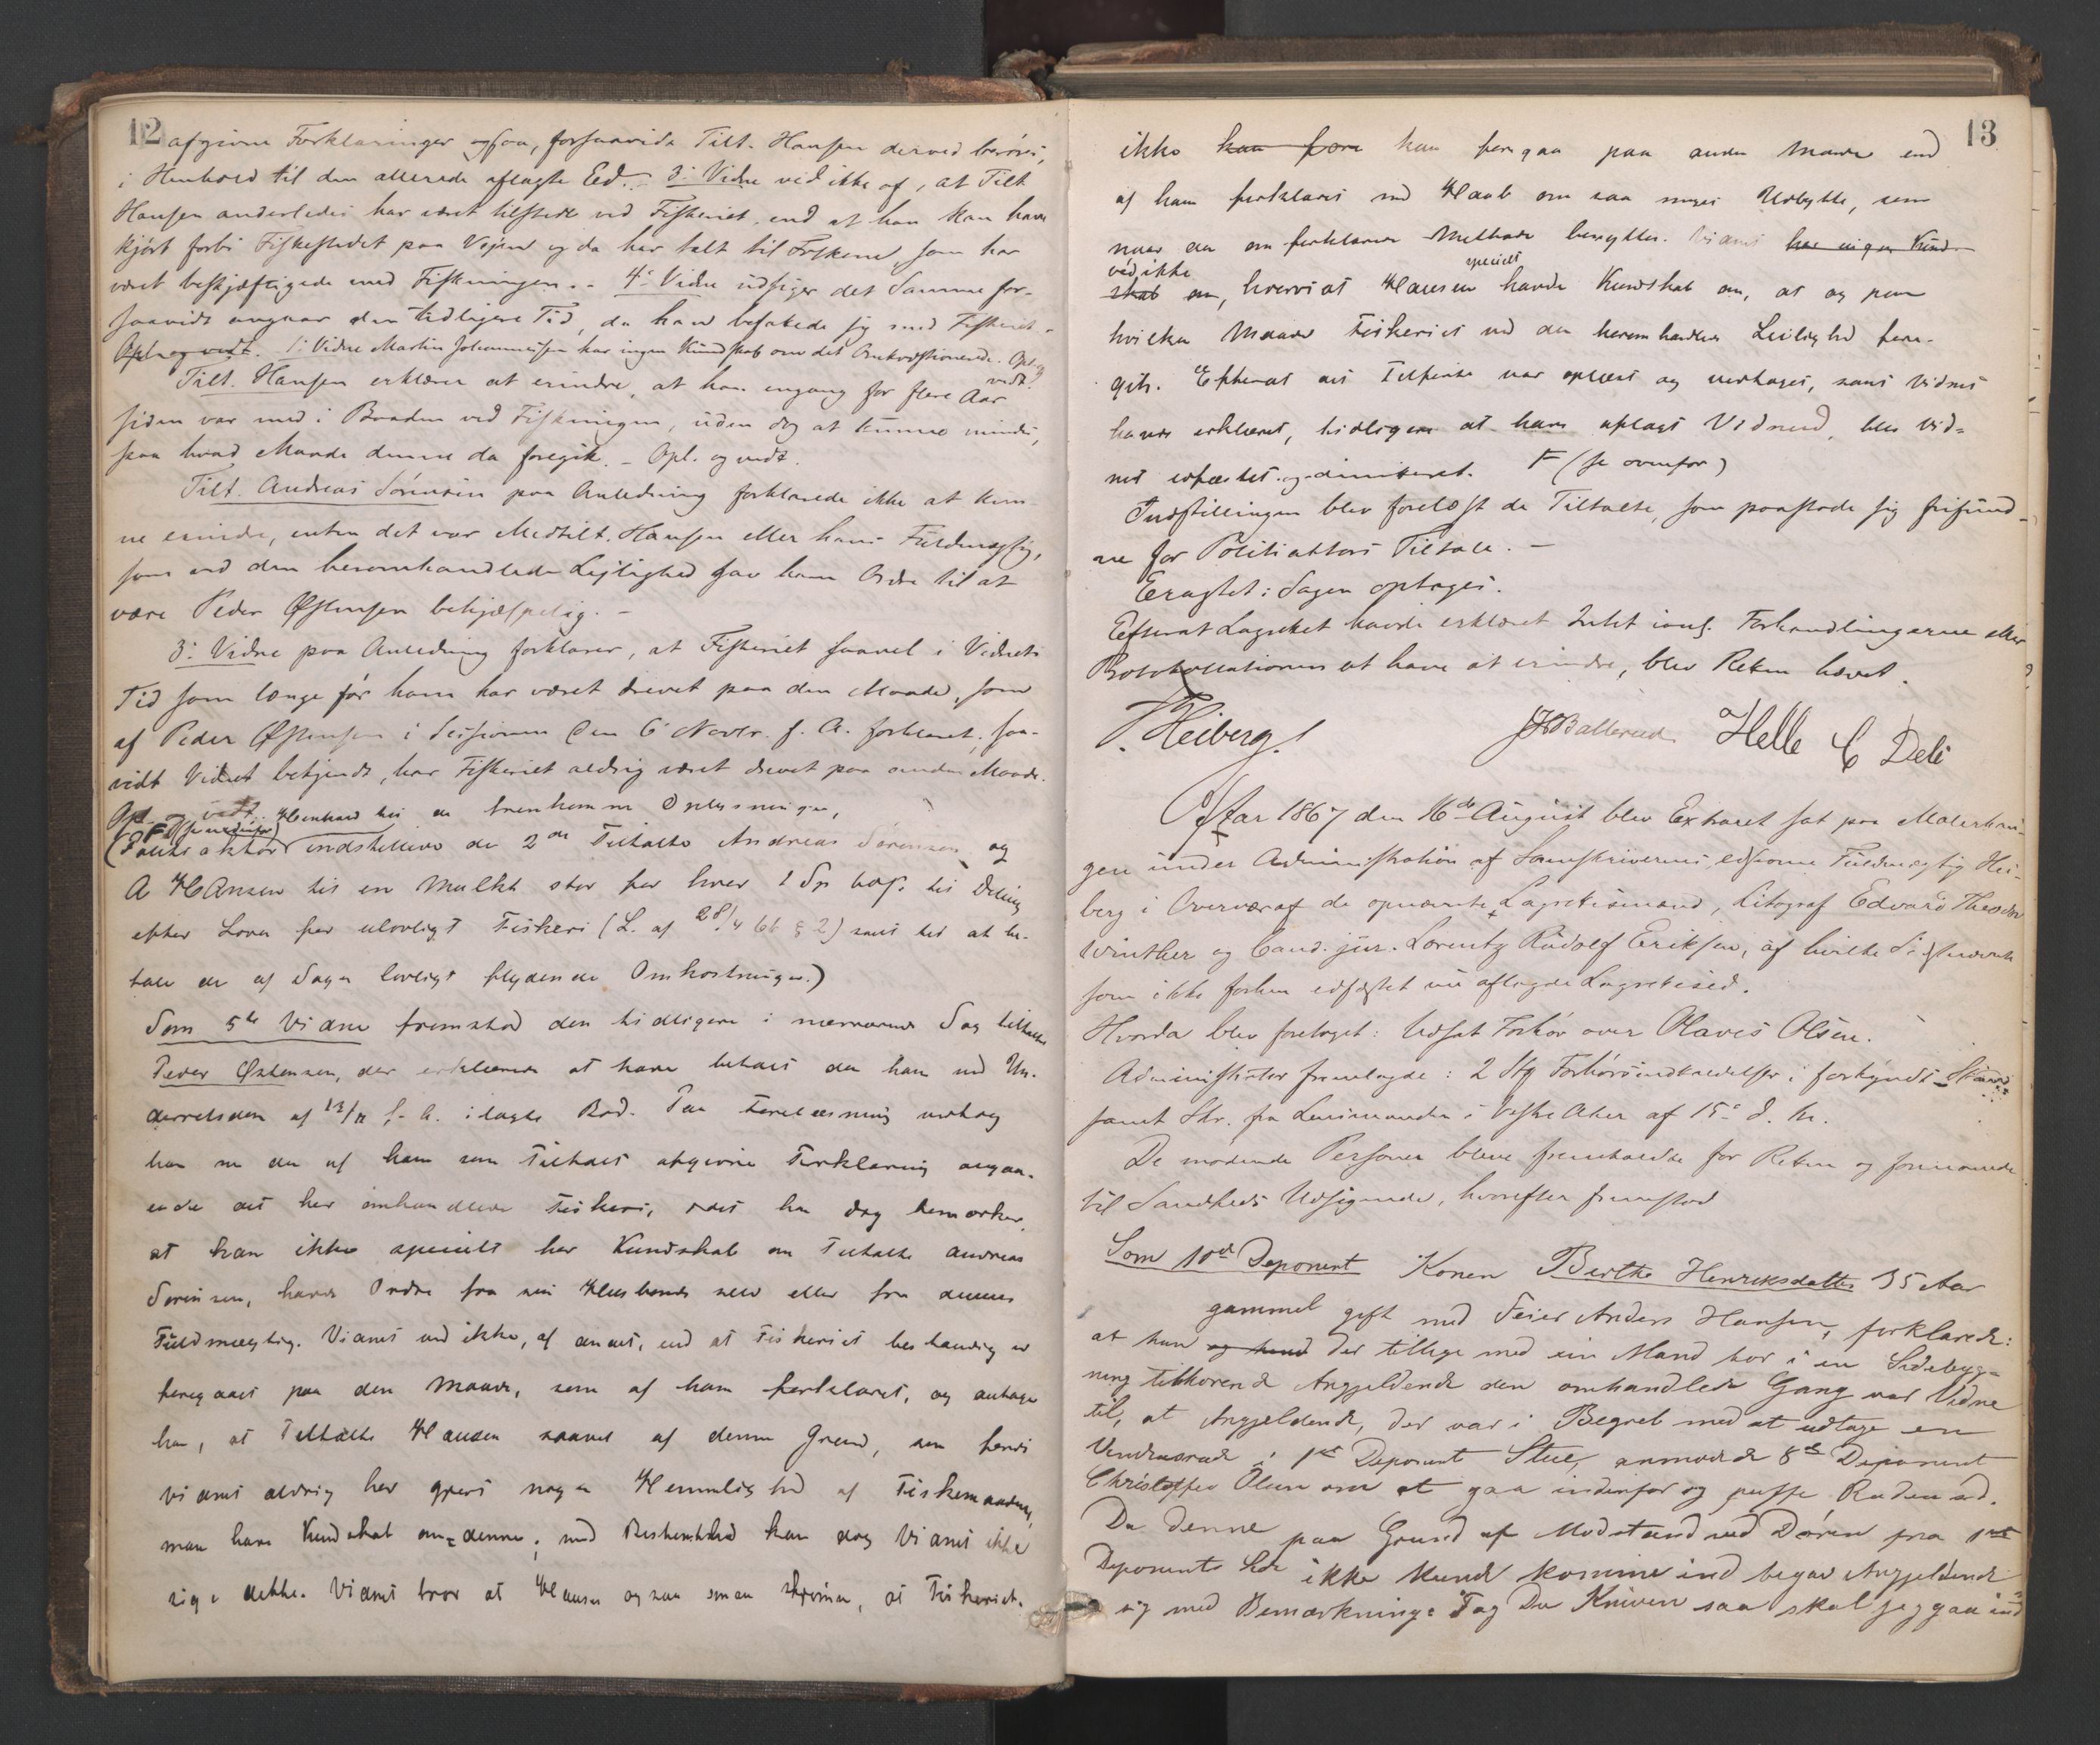 12
afgivne Forklaringer ogsaa, forsaavidt Tilt. Hansen derved berøres,
i Henhold til den allerede aflagte Ed. 3: Vidne ved ikke af, at Tilt
Hansen anderledes har været tilstede ved Fiskeriet, end at han kan have
kjørt forbi Fiskestedet paa Vejen og da har talt til Folkene, som har
været beskjæftigede med Fiskningen. - 4: Vidne udsiger det Samme for-
saavidt angaar den tidligere Tid, da han befattede sig med Fiskeriet.
Opl. og vedt. 1: Vidne Martin Johannesen har ingen Kundskab om det Omkvæstionerede. Opl. og
vedt.
Tilt. Hansen erklærer at erindre, at han engang for flere Aar
siden var med i Baaden ved Fiskningen, uden dog at kunne mindes,
paa hvad Maade denne da foregik. - Opl. og vedt.
Tilt. Andreas Sørensen paa Anledning forklarede ikke at kun-
ne erindre, enten det var Medtilt. Hansen eller hans Fuldmægtig,
som ved den heromhandlede Lejlighed gav ham Ordre til at
være Peder Østensen behjælpelig. -
3: Vidne paa Anledning forklarer, at Fiskeriet saavel i Vidnets
Tid som længe før ham har været drevet paa den Maade, som
af Peder Østensen i Sessionen den 6 Novbr. f. A. forklaret; saa-
vidt Vidnet bekjendt, har Fiskeriet aldrig været drevet paa anden Maade.
Opl. og vedt. Henhold til de fremkomne Oplysninger,
F (se nedenfor)
(Politiaktor indstillede de 2de Tiltalte Andreas Sørensen og
A Hansen til en Mulkt stor for hver 2 Sp til Deling
efter Loven for ulovligt Fiskeri (L. af 28/4 66 § 2) samt til at be-
tale de af Sagen lovligt flydende Omkostninger.)
Som 5te Vidne fremstod den tidligere i nærværende Sag tiltalte
Peder Østensen, der erklærede at have betalt den ham ved Un-
derretsdom af f. A. ilagte Bod. Paa Forelæsning vedtog
han nu den af ham som Tiltalt afgivne Forklaring angaa-
ende det her omhandlede Fiskeri, idet han dog bemærker,
at han ikke specielt har Kundskab om Tiltalte Andreas
Sørensen, havde Ordre fra sin Husbonde selv eller fra dennes
Fuldmægtig. Vidnet ved ikke af andet, end at Fiskeriet bestandig er
foregaaet paa den Maade, som af ham forklaret, og antager
han, at Tiltalte Hansen saavel af denne Grund, som fordi
Vidnet aldrig har gjort nogen Hemmelighed af Fiskemaaden,
maa have Kundskab om denne; med Bestemthed kan dog Vidnet ikke
sige dette. Vidnet tror at Hansen ogsaa maa skjønne, at Fiskeriet.
13
ikke kan foregaa paa anden Maade end
af ham forklaret med Haab om saa meget Udbytte, som
naar den om forklarede Methode benyttes. Vidnet har ingen Kund-
ved ikke specielt
skab om, hvorvidt Hansen havde Kundskab om, at og paa
hvilken Maade Fiskeriet ved den heromhandlede Leilighed fore-
gik. Efterat det Tilførte var oplæst og vedtaget, samt Vidnet
havde erklæret, tidligere at have aflagt Vidneed, blev Vid-
net edfæstet og dimitteret. F (se ovenfor)
Indstillingen blev forelæst de Tiltalte, som paastode sig frifund-
ne for Politiaktors Tiltale. -
Eragtet: Sagen optages.
Efterat Lagrettet havde erklæret Intet imod Forhandlingerne eller
Protokollationen at have at erindre, blev Retten hævet.
Heiberg. Ballerud Helle C Deli
Aar 1867 den 16de August blev Extraret sat paa Malerhau-
gen under Administration af Sorenskriverens edsvorne Fuldmægtig Hei-
berg i Overvær af de opnævnte Lagrettesmænd, Litograf Edvard Theodor
Winther og Cand. jur. Lorentz Rudolf Eriksen, af hvilke Sidstnævnte
som ikke forhen edfæstet nu aflagde Lagretteed.
Hvorda blev foretaget: Udsat Forhør over Olaves Olsen.
Administrator fremlagde: 2 Stk Forhørsindkaldelser i forkyndt Stand
samt Skr. fra Lensmanden i Vestre Aker af 15de d. M.
De mødende Personer bleve fremkaldte for Retten og formanede
til Sandheds Udsigende, hvorefter fremstod
Som 10de Deponent Konen Berthe Henriksdatter 35 Aar
gammel gift med Feier Anders Hansen, forklarede:
at hun og hend der tillige med sin Mand bor i en Sidebyg-
ning tilhørende Angjældende den omhandlede Gang var Vidne
til, at Angjældende, der var i Begreb med at udtage en
Vinduesrude i 1ste Deponents Stue, anmodede 8de Deponent
Christoffer Olsen om at gaa indenfor og puffe Ruden ud.
Da denne paa Grund af Modstand ved Døren fra 1ste
Deponents Side ikke kunde komme ind begav Angjældende
sig med Bemærkning: Tag Du Kniven saa skal jeg gaa ind